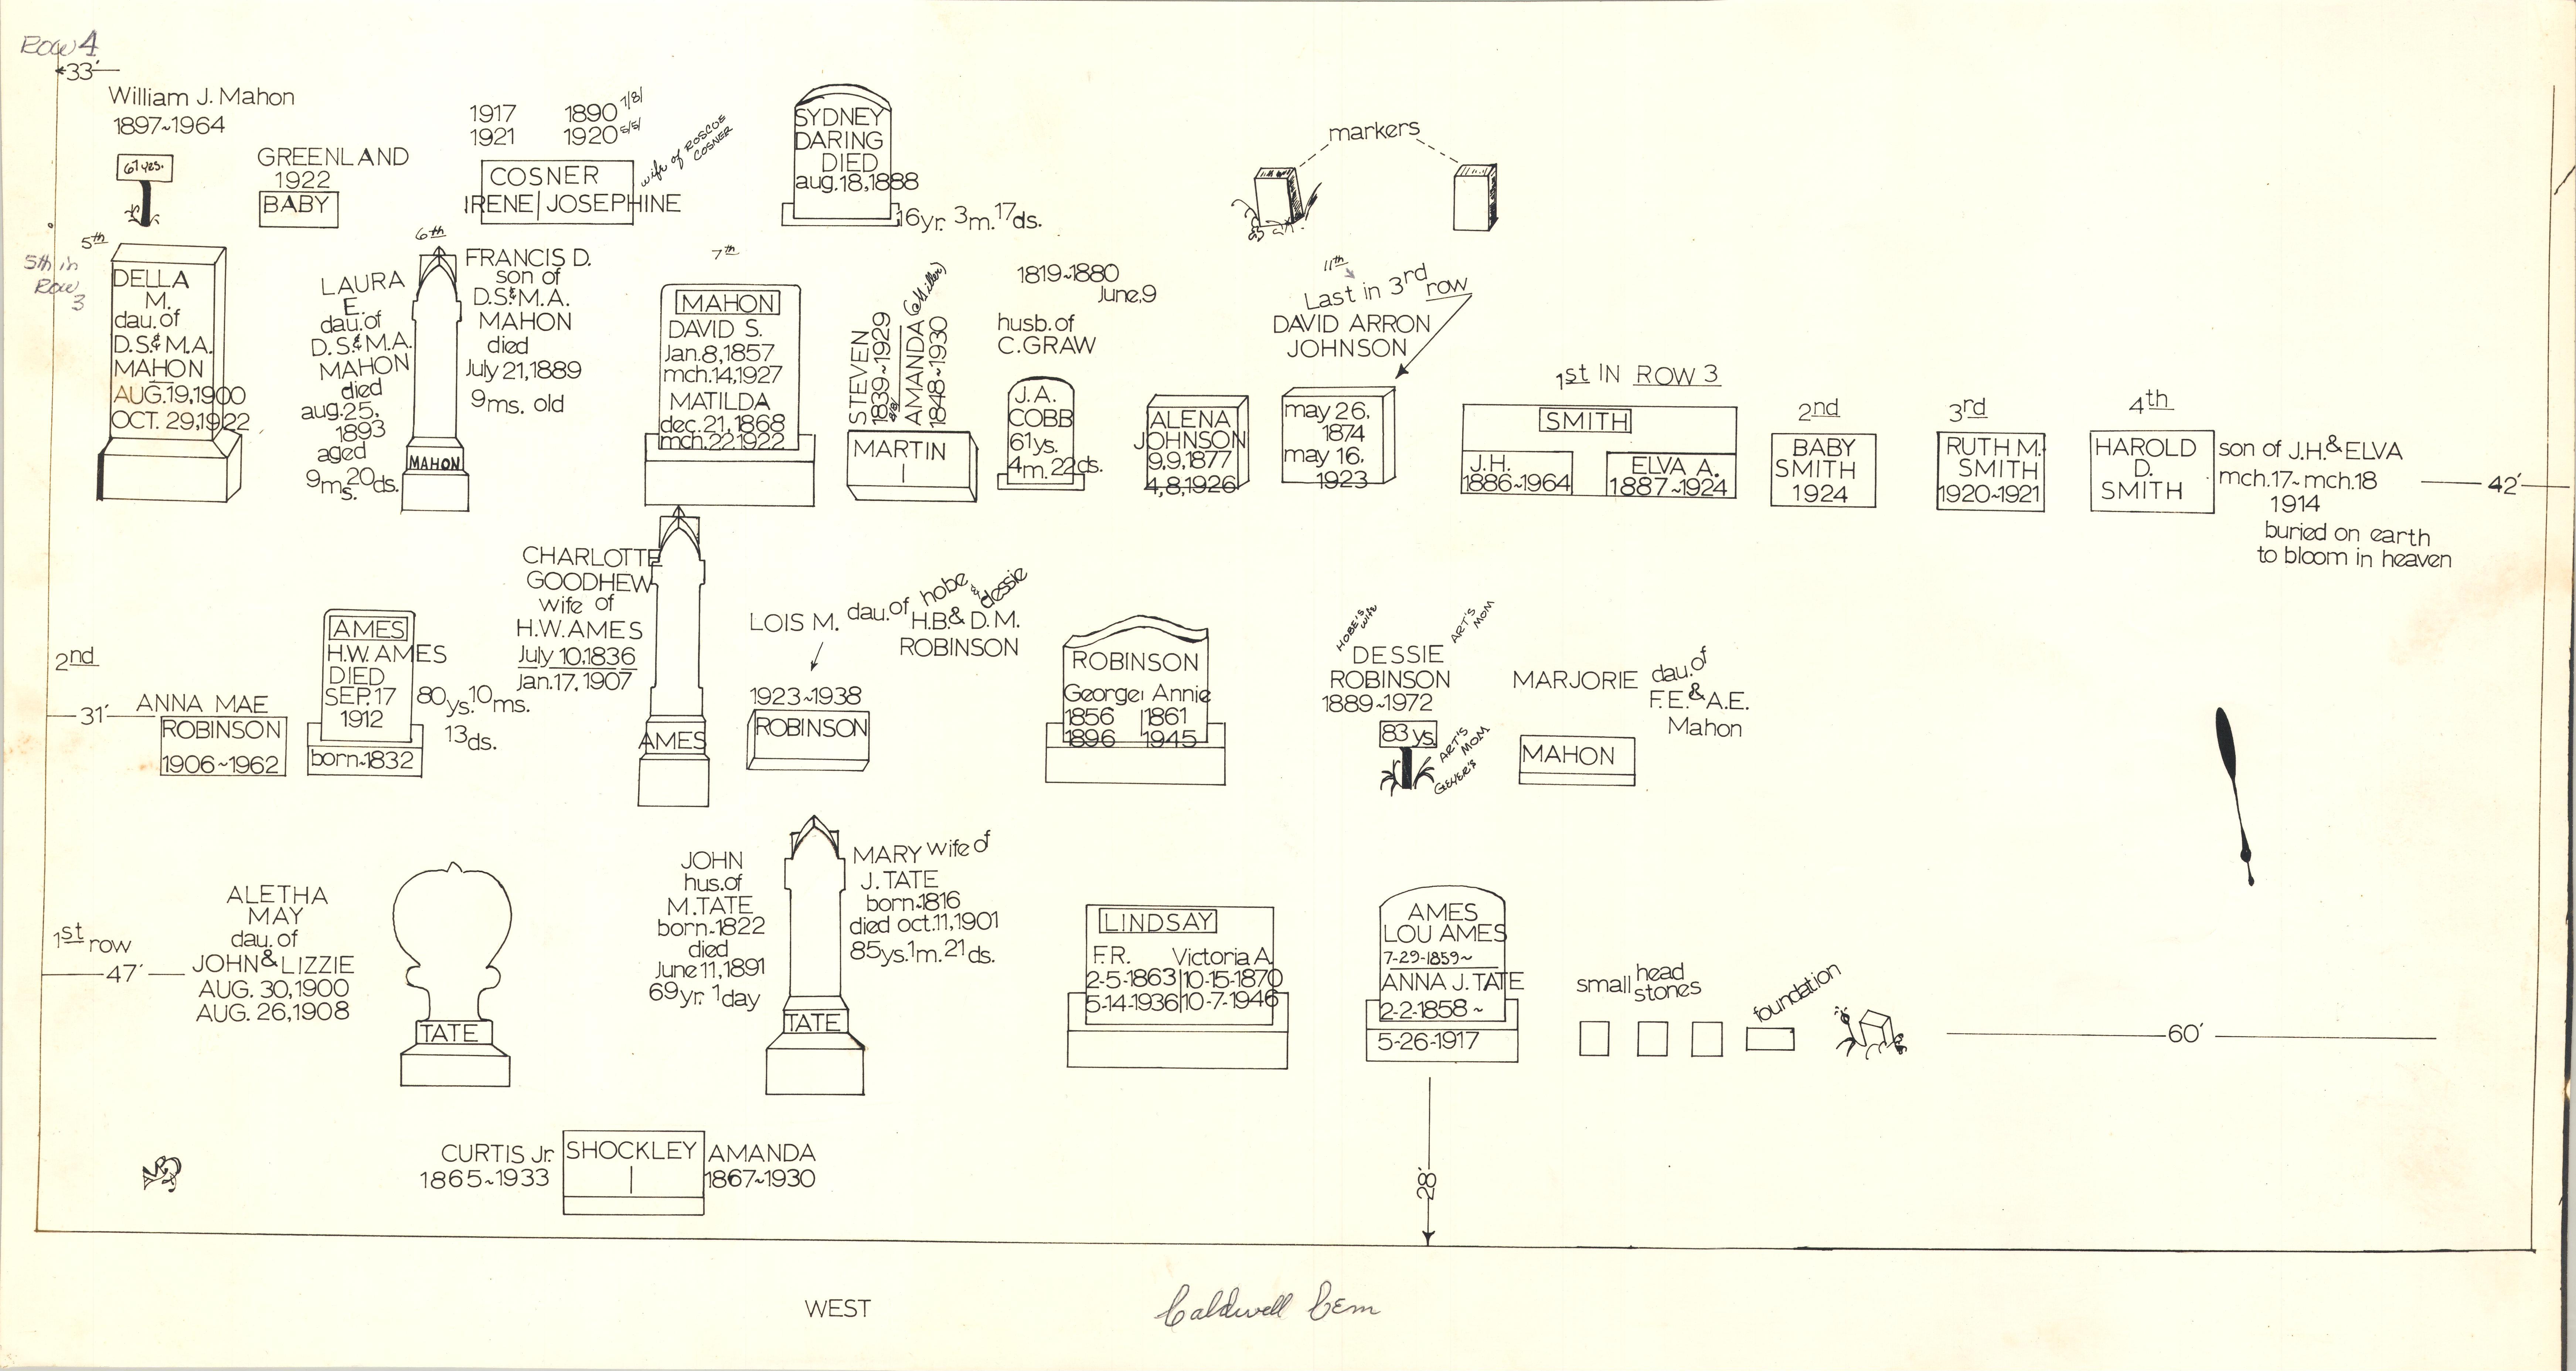 Row 4
33'
William J. Mahon
1897~1964
67 yrs.
GREENLAND
1922
BABY
1917 1890 7/8/
1921 1920 5/5/
wife of ROSCOE
COSNER
COSNER
IRENE | JOSEPHINE
SYDNEY
DARING
DIED
aug.18,1888
16yr. 3m. 17ds.
markers
5th
5th in
Row
3
DELLA
M.
dau. of
D.S.& M.A.
MAHON
AUG.19,1900
OCT. 29,1922
LAURA
E.
dau. of
D.S.& M.A.
MAHON
died
aug.25,
1893
aged
9ms. 20ds.
6th
MAHON
FRANCIS D.
son of
D.S.& M.A.
MAHON
died
July 21,1889
9ms. old
7th
MAHON
DAVID S.
Jan.8,1857
mch.14,1927
MATILDA
dec.21,1868
mch.22,1922
STEVEN
1839~1929
AMANDA (Miller)
1848~1930
MARTIN
1819~1880
June,9
husb. of
C.GRAW
J.A.
COBB
61ys.
4m. 22ds.
ALENA
JOHNSON
9,9,1877
4,8,1926
11th
Last in 3rd row
DAVID ARRON
JOHNSON
may 26,
1874
may 16,
1923
1st IN ROW 3
SMITH
J.H.
1886~1964
ELVA A.
1887~1924
2nd
BABY
SMITH
1924
3rd
RUTH M.
SMITH
1920~1921
4th
HAROLD
D.
SMITH
son of J.H.& ELVA
mch.17~mch.18
1914
buried on earth
to bloom in heaven
42'
2nd
31'
ANNA MAE
ROBINSON
1906~1962
AMES
H.W. AMES
DIED
SEP.17
1912
born~1832
80ys. 10ms.
13ds.
CHARLOTTE
GOODHEW
wife of
H.W.AMES
July 10,1836
Jan.17, 1907
AMES
LOIS M. dau. of hobe & dessie
H.B.& D.M.
ROBINSON
1923~1938
ROBINSON
ROBINSON
George Annie
1856 1861
1896 1945
HOBE'S
wife
ART'S
MOM
DESSIE
ROBINSON
1889~1972
83 ys.
ART'S
MOM
GEYER'S
MARJORIE dau. of
F.E. & A.E.
Mahon
MAHON
1st row
47'
ALETHA
MAY
dau. of
JOHN & LIZZIE
AUG. 30,1900
AUG. 26,1908
TATE
JOHN
hus. of
M.TATE
born~1822
died
June 11,1891
69yr. 1day
TATE
MARY wife of
J. TATE
born~1816
died oct.11,1901
85ys. 1m. 21ds.
LINDSAY
F.R. Victoria A.
2-5-1863|10-15-1870
5-14-1936|10-7-1946
AMES
LOU AMES
7-29-1859~
ANNA J. TATE
2-2-1858~
5-26-1917
small head
stones
foundation
60'
28'
CURTIS Jr.
1865~1933
SHOCKLEY
AMANDA
1867~1930
WEST
Caldwell Cem